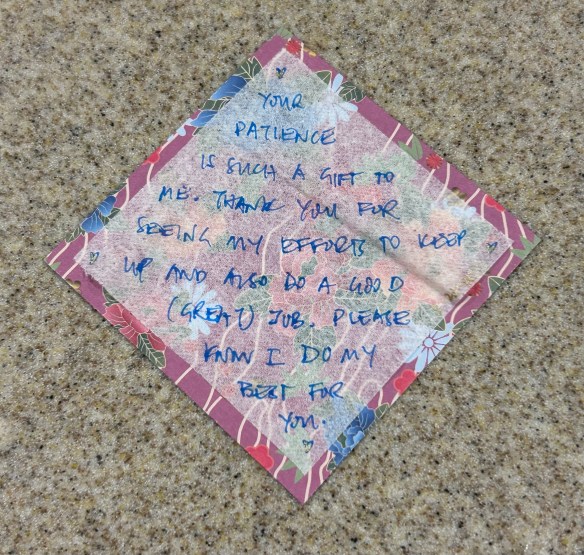 YOUR
PATIENCE
IS SUCH A GIFT TO
ME. THANK YOU FOR
SEEING MY EFFORTS TO KEEP
UP AND ALSO DO A GOOD
(GREAT) JOB. PLEASE
KNOW I DO MY
BEST FOR
YOU.